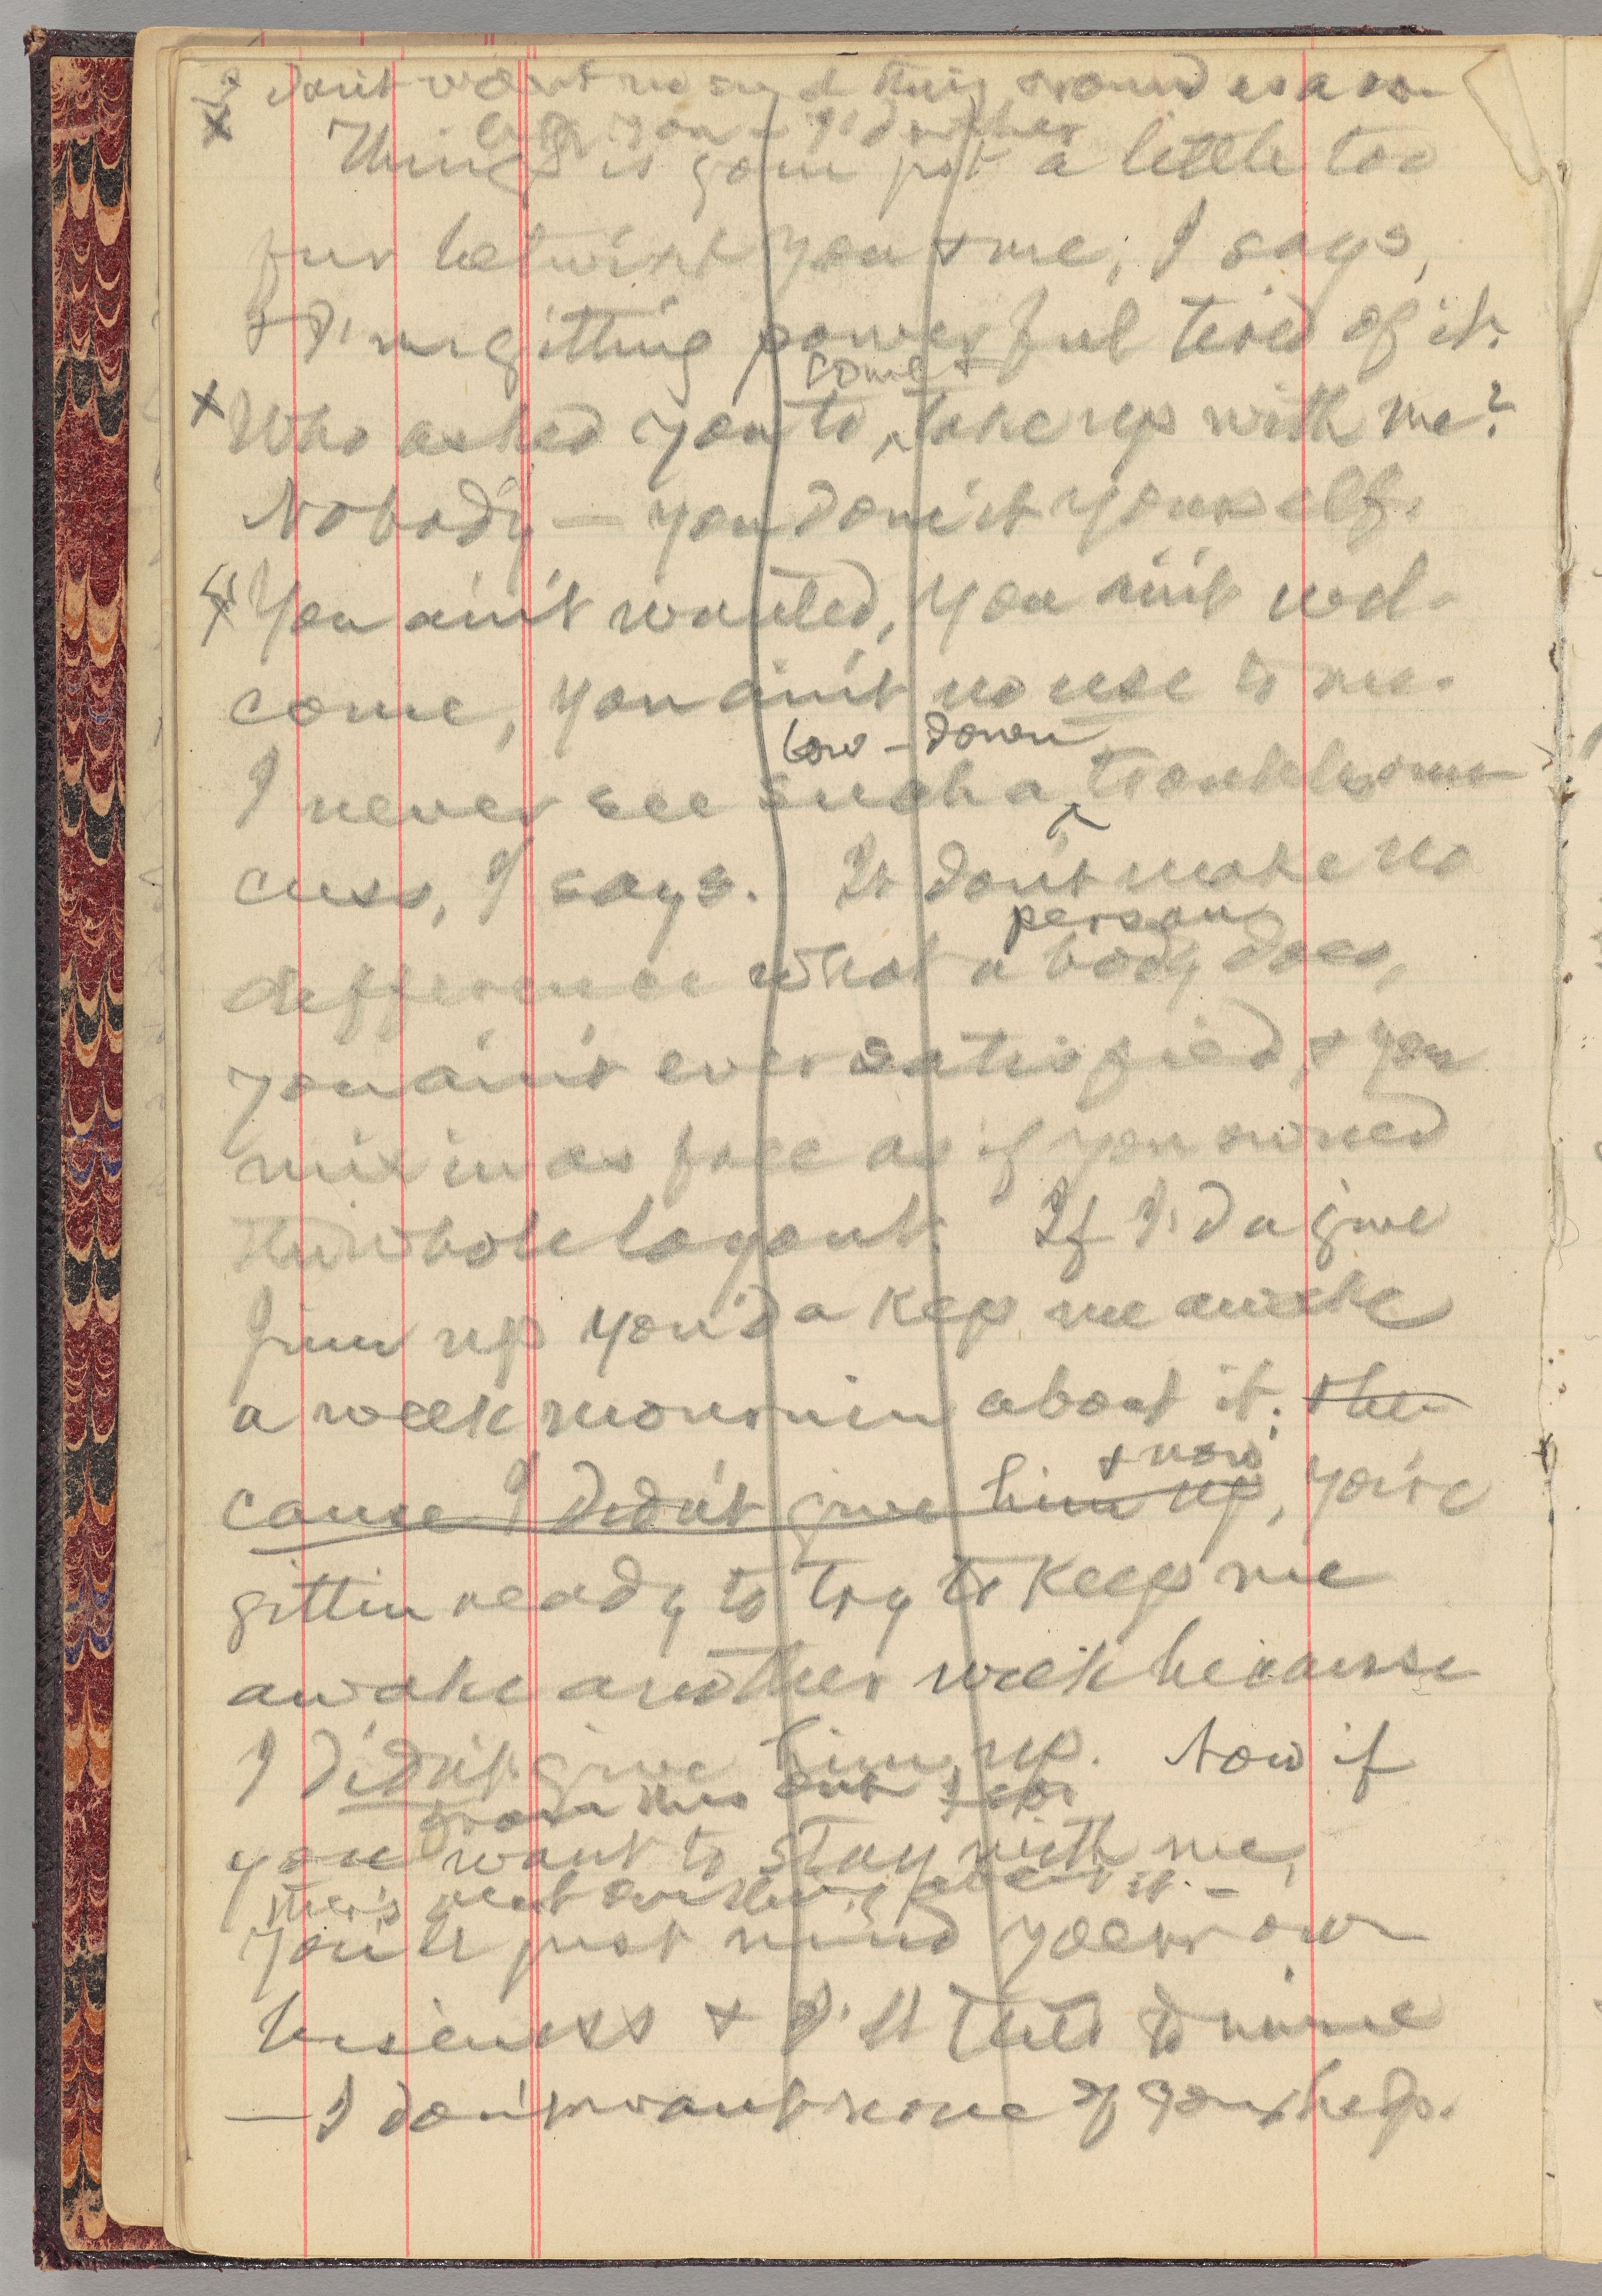 I don't want no such thing around as a
you – I'd ruther
Things is goin just a little too
fur betwixt you & me, I says,
& I'm gitting powerful tired of it.
come &
Who asked you to ^ take up with me?
Nobody — you done it yourself.
You ain't wanted, you ain't wel-
come, you ain't no use to me.
low-down
I never see such a ^ troublesome
cuss, I says. It don't make no
person
difference what a body does,
you ain't ever satisfied, & you
mix in as free as if you owned
the whole layout. If I'd a give
Jim up you'd a kep me awake
a week mournin about it; the
& now
cause I didn't give him up, you're
gittin ready to try to keep me
awake another week because
I didn't give him up. Now if
from this out
you want to stay with me,
ther's just one thing about it –
you'll just mind your own
business & I'll tend to mine
— I don't want none of your help.